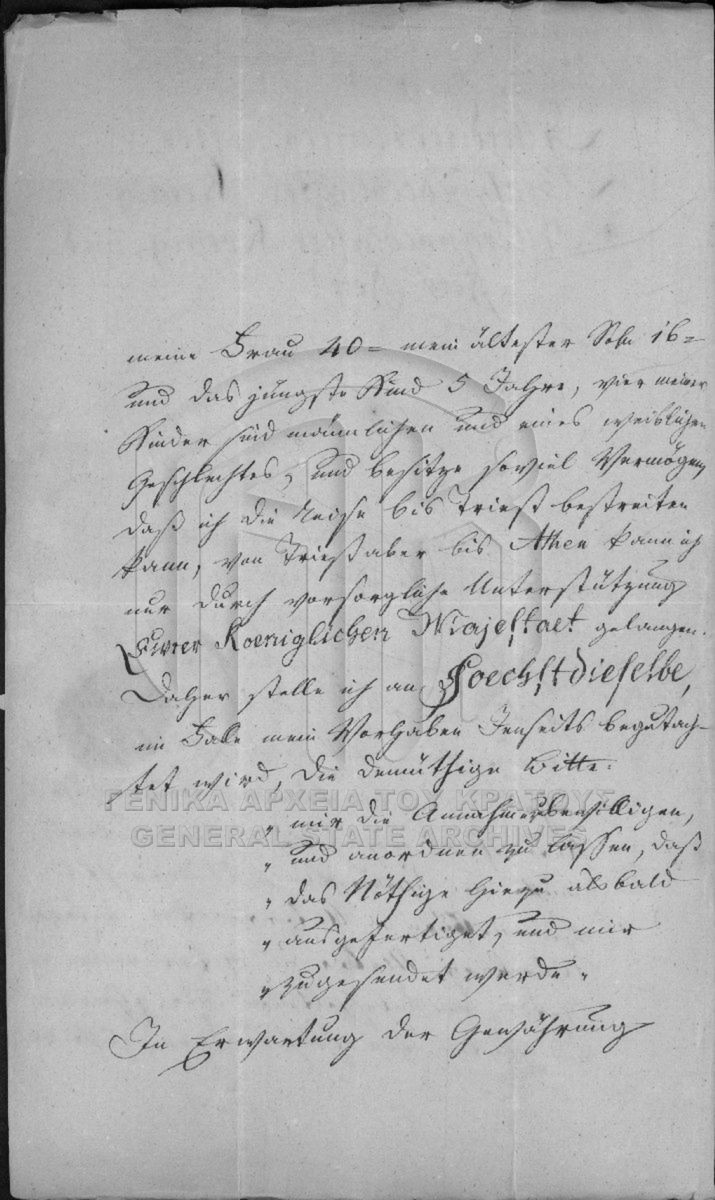 meine Frau 40 = mein ältester Sohn 16 =
und das jüngste Kind 5 Jahre, vier meiner
Kinder sind männlichen und eines weiblichen
Geschlechtes, und besitze soviel Vermögen,
daß ich die Reise bis Triest bestreiten
kann, von Triest aber bis Athen kann ich
nur durch vorsorgliche Unterstützung
Eurer Koeniglichen Majestaet gelangen.
Daher stelle ich an Hoechstdieselbe,
im Falle mein Vorhaben Jenseits begutach-
tet wird, die demüthige Bitte:
ΓΕΝΙΚΑ ΑΡΧΕΙΑ ΤΟΥ ΚΡΑΤΟΥΣ
GENERAL STATE ARCHIVES
„ mir die Annahme bewilligen,
„ und anordnen zu lassen, daß
„ das Nöthige hiezu alsbald
„ ausgefertiget, und mir
„ zugesendet werde. „
In Erwartung der Gewährung